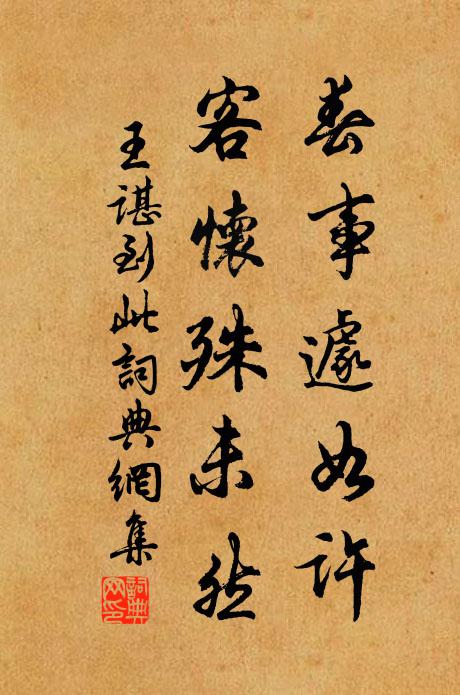 春事遽如許
客懷殊未然
王諶到此詞典網集
詞典網印